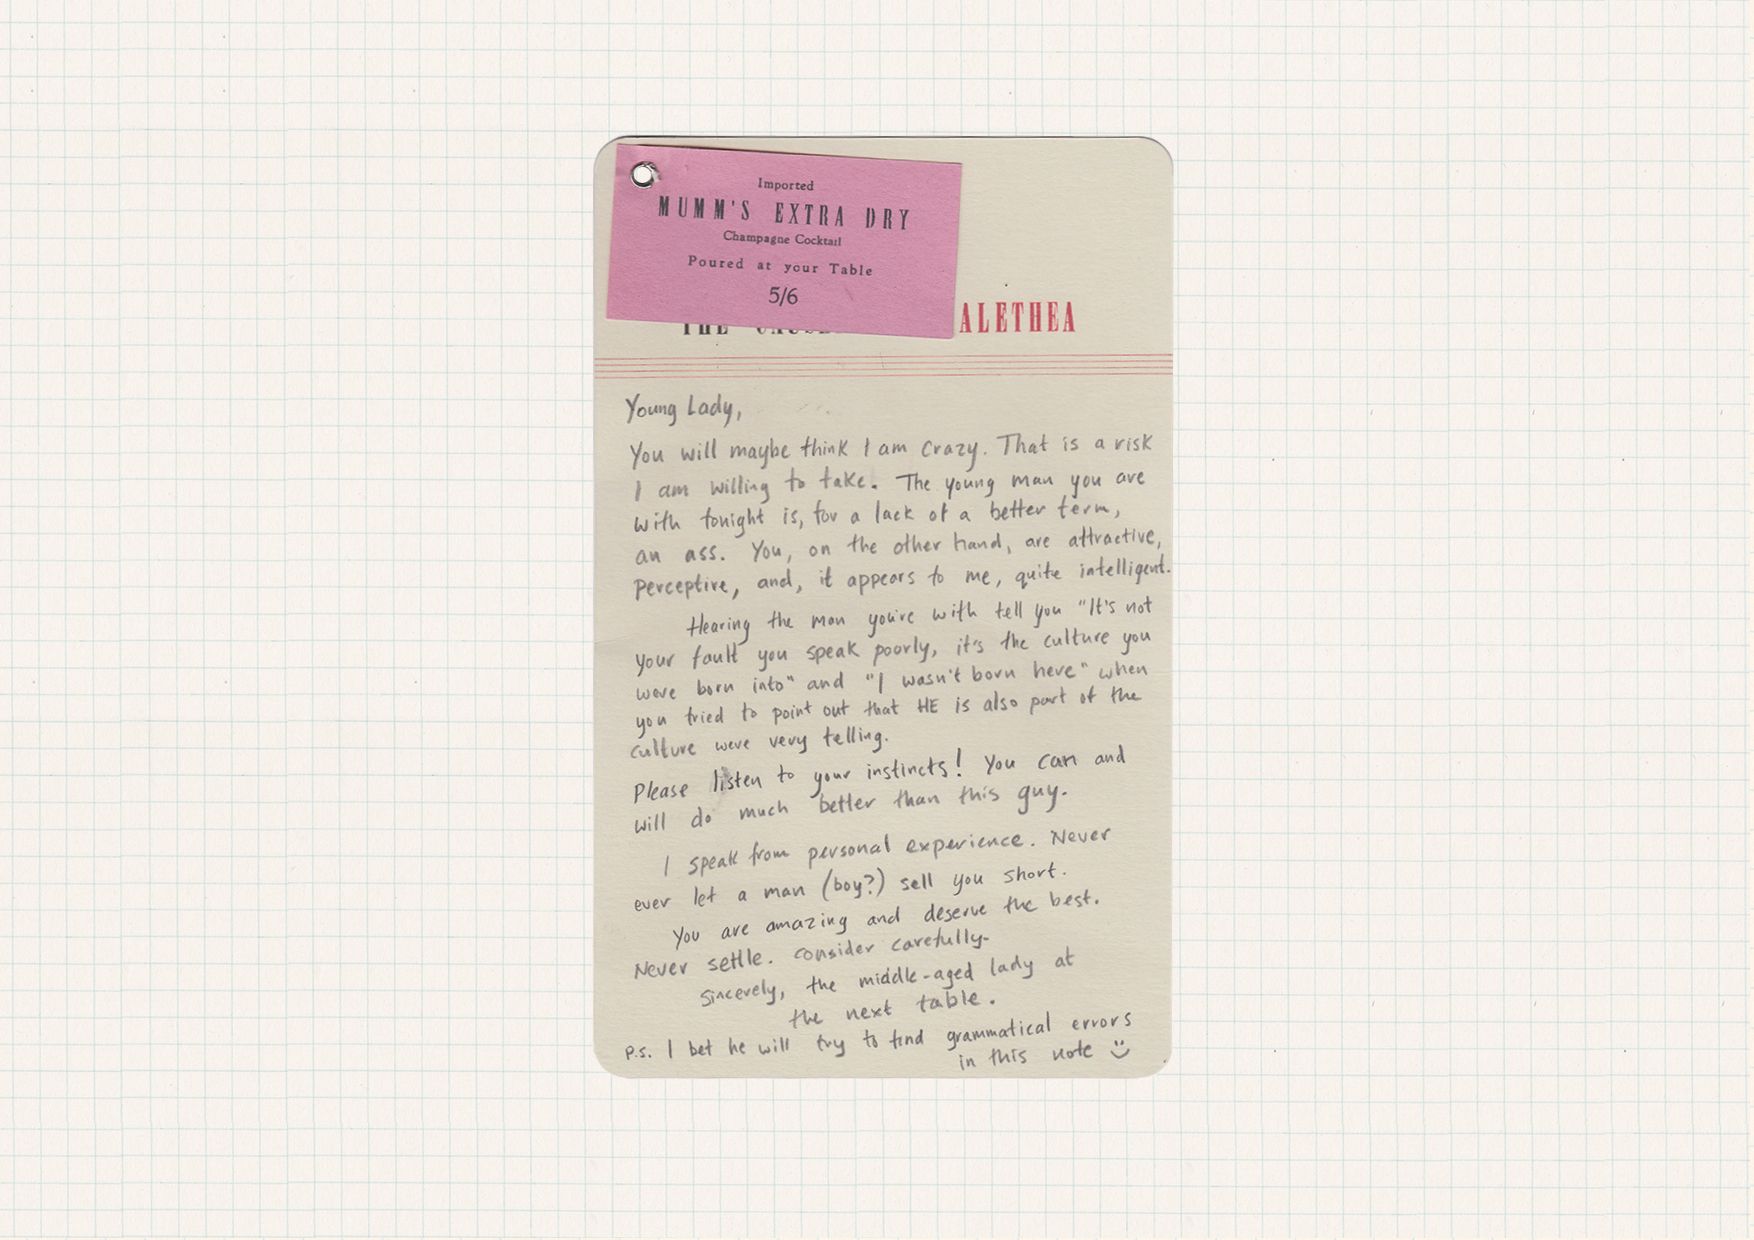 Imported
MUMM'S EXTRA DRY
Champagne Cocktail
Poured at your Table
5/6
THE ALETHEA
Young Lady,
You will maybe think I am crazy. That is a risk
I am willing to take. The young man you are
with tonight is, for a lack of a better term,
an ass. You, on the other hand, are attractive,
perceptive, and, it appears to me, quite intelligent.
Hearing the man you're with tell you "It's not
your fault you speak poorly, it's the culture you
were born into" and "I wasn't born here" when
you tried to point out that HE is also part of the
culture were very telling.
Please listen to your instincts! You can and
will do much better than this guy.
I speak from personal experience. Never
ever let a man (boy?) sell you short.
You are amazing and deserve the best.
Never settle. Consider carefully-
Sincerely, the middle-aged lady at
the next table.
P.S. I bet he will try to find grammatical errors
in this note